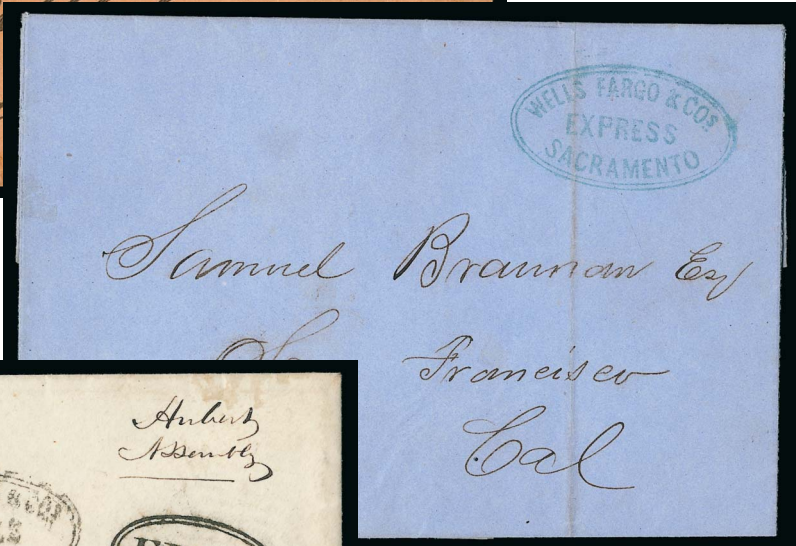 WELLS FARGO & COS.
EXPRESS
SACRAMENTO
Samuel Brannan Esq
Francisco
Cal
Hubert
Assembly
& COS